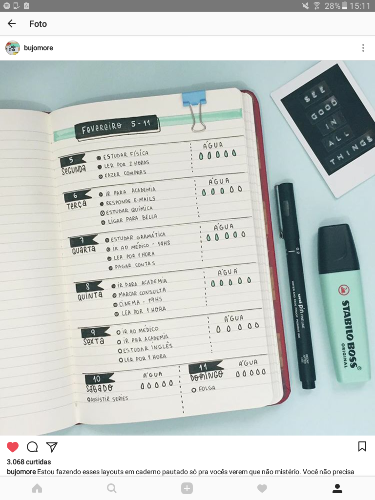 28% 15:11
Foto
bujomore
FEVEREIRO 5-11
5
SEGUNDA
ESTUDAR FÍSICA
LER POR 2 HORAS
FAZER COMPRAS
ÁGUA
6
TERÇA
IR PARA ACADEMIA
RESPONDER E-MAILS
ESTUDAR QUÍMICA
LIGAR PARA BELLA
ÁGUA
7
QUARTA
ESTUDAR GRAMÁTICA
IR AO MÉDICO - 14HS
LER POR 1 HORA
PAGAR CONTAS
ÁGUA
8
QUINTA
IR PARA ACADEMIA
MARCAR CONSULTA
CINEMA - 19HS
LER POR 1 HORA
ÁGUA
9
SEXTA
IR AO MÉDICO
IR PRA ACADEMIA
ESTUDAR INGLÊS
LER POR 1 HORA
ÁGUA
10
SÁBADO
ASSISTIR SÉRIES
ÁGUA
11
DOMINGO
FOLGA
ÁGUA
SEE
GOOD
IN
ALL
THINGS
uni pin
STABILO BOSS
ORIGINAL
3.068 curtidas
bujomore Estou fazendo esses layouts em caderno pautado só pra vocês verem que não mistério. Você não precisa